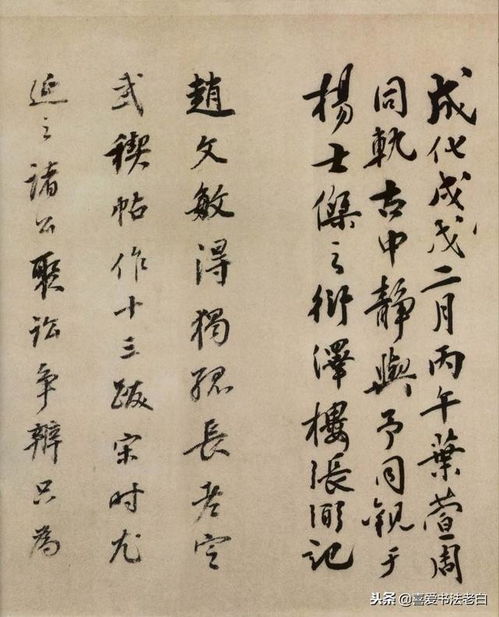 成化戊戌二月丙午葉萱周
同軌古中靜與予同觀于
楊士傑之衍澤樓張弼記
趙文敏得獨孤長老定
武禊帖作十三跋宋时尤
延之諸公聚訟爭辯只為
头条 @喜爱书法老白